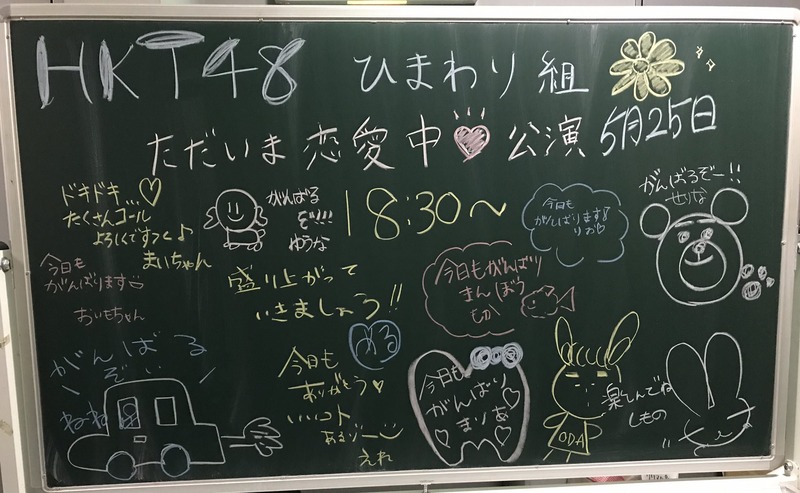 HKT48 ひまわり組
ただいま恋愛中♡公演 5月25日
18:30～
ドキドキ...♡
たくさんコール
よろしくですっ♪
まいちゃん
がんばる
ぞ!!!
ゆうな
今日も
がんばります
りお
がんばるぞー!!
せりな
今日も
がんばります
おいもちゃん
盛り上がって
いきましょう!!
める
今日もがんばり
まんぼう
もか
がんばる
ぞい
ねね
今日も
ありがとう♡
いいコト
あるゾー
えれ
今日も
がんばり
まりあ
ODA
楽しんでね
しもの